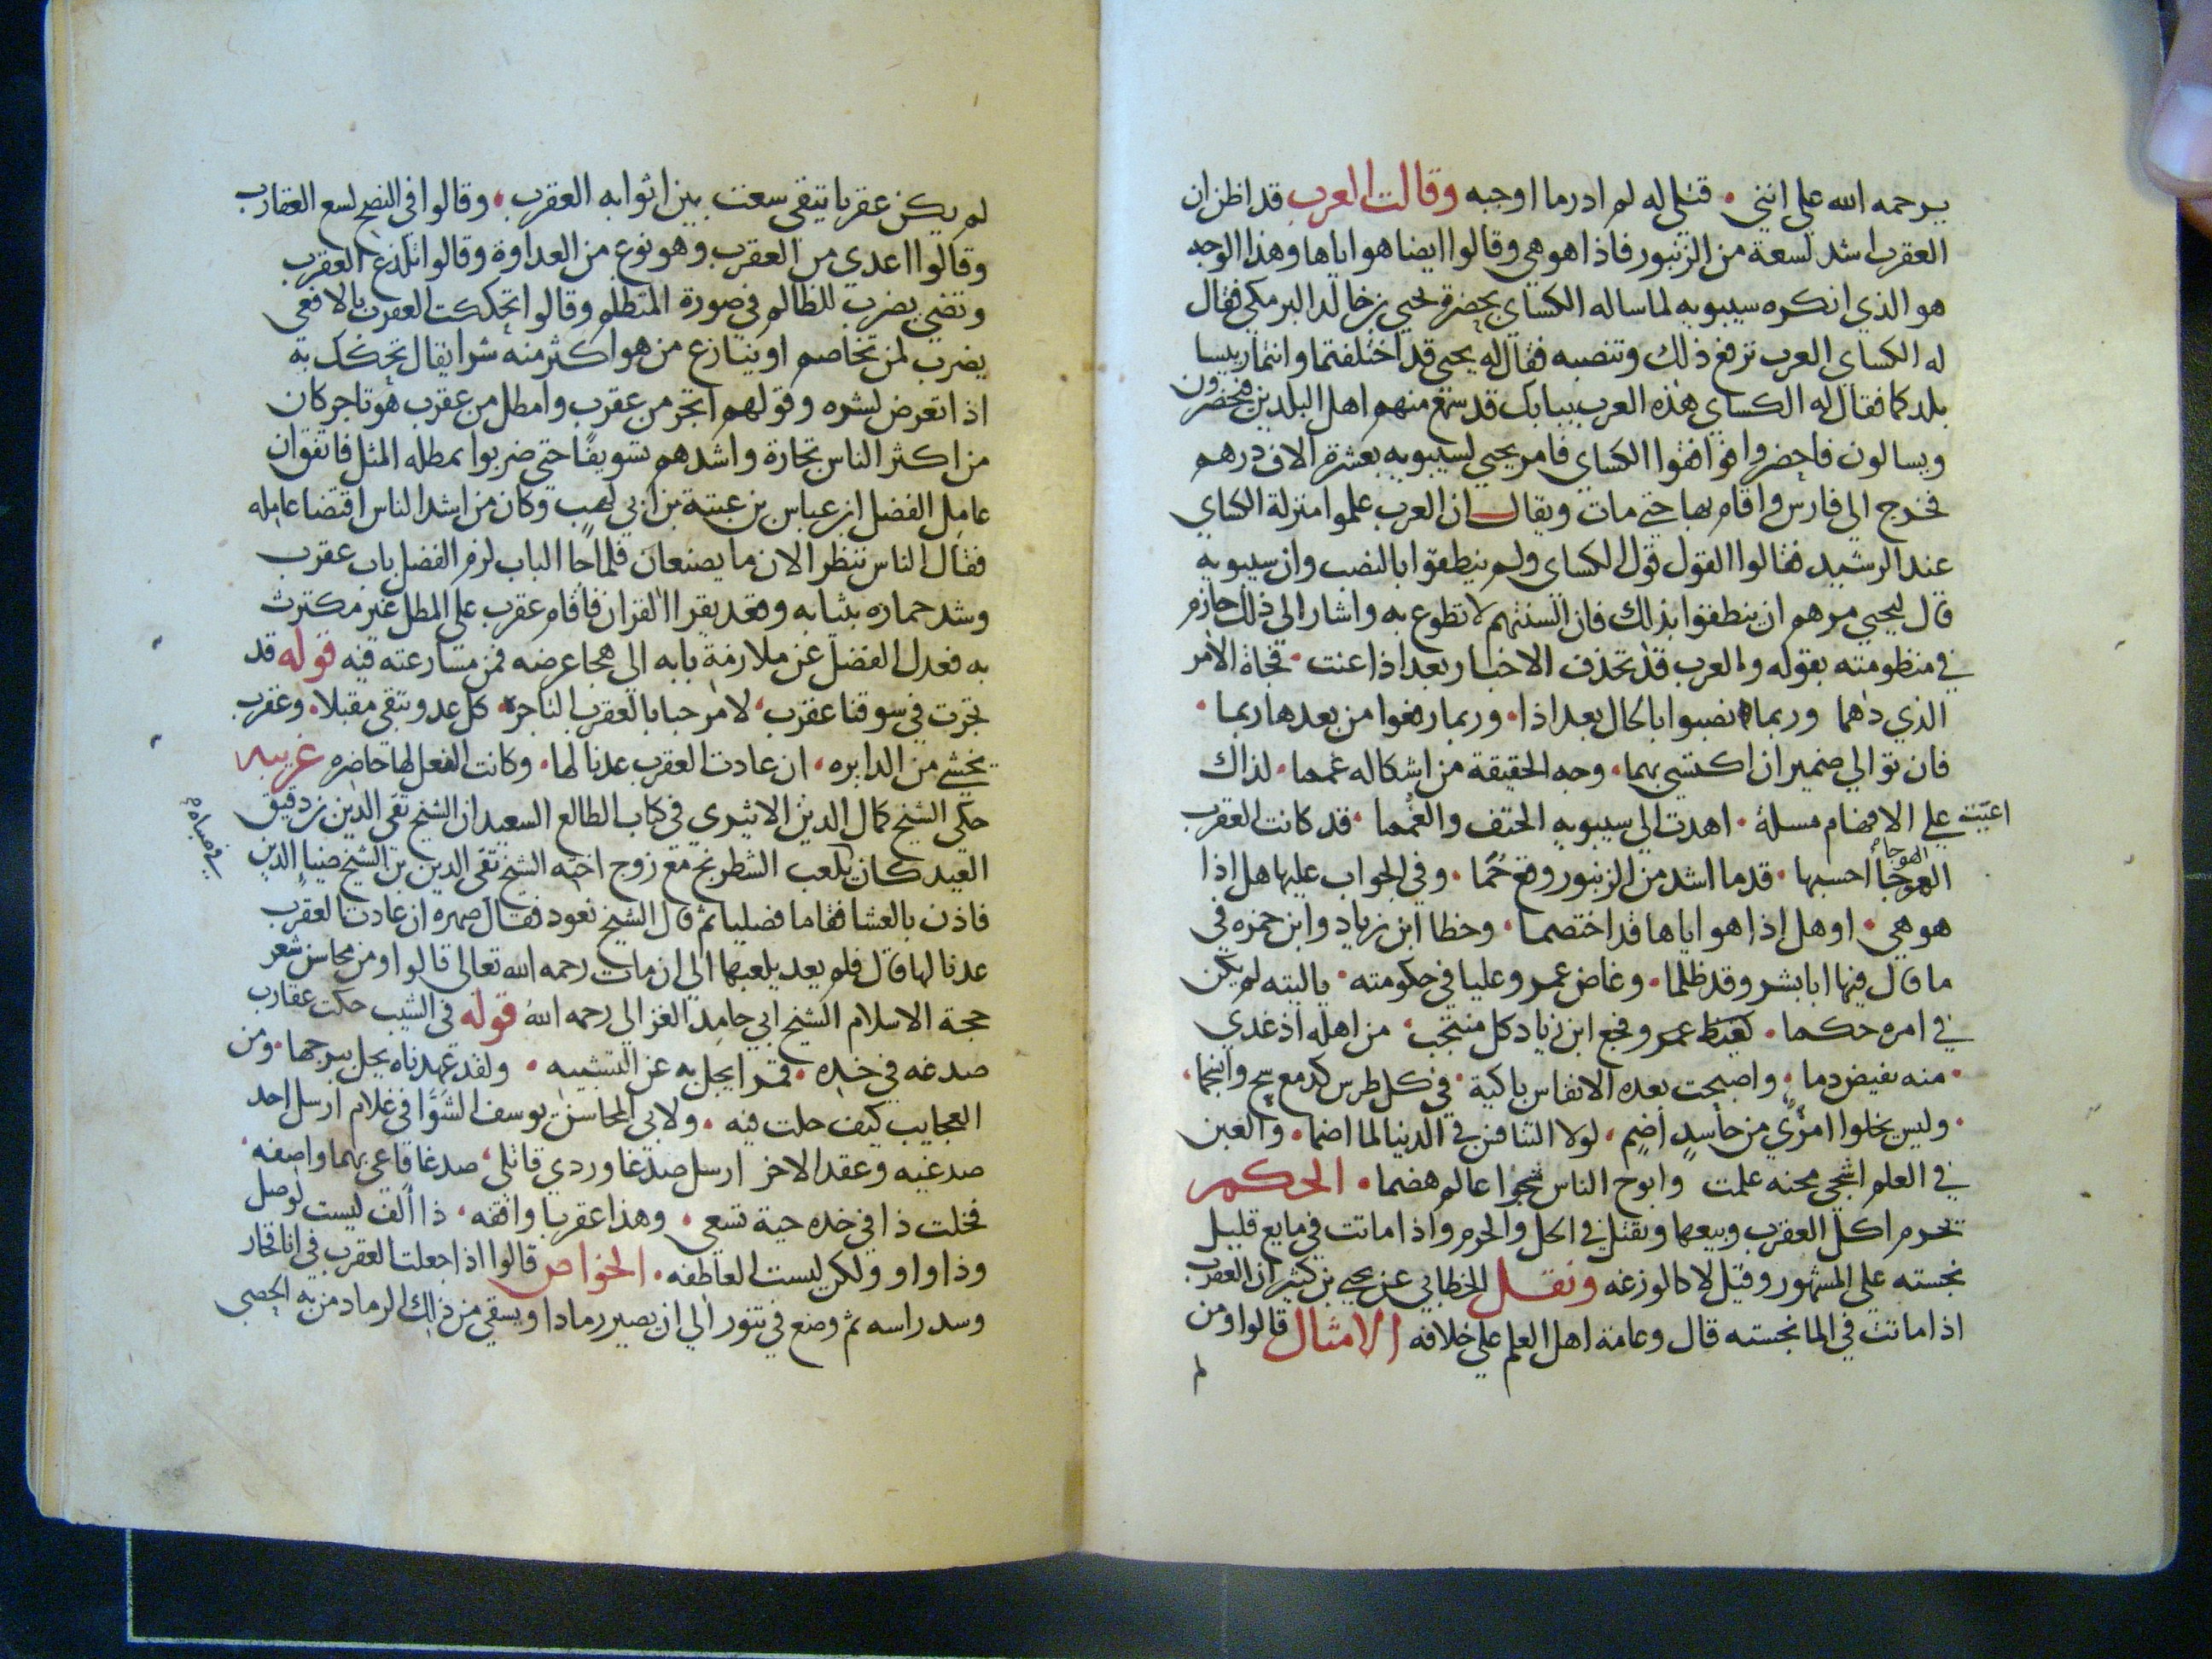 يرحمه الله على انني • قتلى له لم ادر ما اوجبه وقالت العرب قد اظن ان
العقرب اشد لسعة من الزنبور فاذا هو هي وقالوا ايضا هو اياها وهذا الوجه
هو الذي انكره سيبويه لما ساله الكساي بحضرة يحيى بن خالد البرمكي فقال
له الكساي العرب ترفع ذلك وتنصبه فقال له يحيى قد اختلفتما وانتما رييسا
بلدكما فقال له الكساي هذه العرب ببابك قد سمع منهم اهل البلدين فيحضرون
ويسالون فاحضروا فوافقوا الكساي فامر يحيى لسيبويه بعشرة الاف درهم
فخرج الى فارس واقام بها حتى مات ويقال ان العرب علموا منزلة الكساي
عند الرشيد فقالوا القول قول الكساي ولم ينطقوا بالنصب وان سيبويه
قال ليحيى مرهم ان ينطقوا بذلك فان السنتهم لا تطوع به واشار الى ذلك حازم
في منظومته بقوله والعرب قد تحذف الاخبار بعد اذا عنت • فجاة الامر
الذي دهما وربما نصبوا بالحال بعد اذا • وربما رفعوا من بعدها ربما •
فان توالي ضميران اكتسى بهما • وجه الحقيقة من اشكاله غمما • لذاك
اعيت على الافهام مسلة • اهدت الى سيبويه الحتف والغمما • قد كانت العقرب
العوجا الهوجاء احسبها • قدما اشد من الزنبور وقع حما • وفي الجواب عليها هل اذا
هو هي • او هل اذا هو اياها قد اختصما • وخطا ابن زياد وابن حمزه في
ما قال فيها ابا بشر وقد ظلما • وغاض عمرو عليا في حكومته • ياليته لم يكن
في امره حكما • كغيظ عمرو فجع ابن زياد كل منتخب • من اهله اذ غدي
• منه يفيض دما • واصبحت بعده الانفاس باكية • في كل طرس كدمع سح وانسجما •
• وليس يخلوا امرؤ من حاسد اضم • لولا التنافس في الدنيا لما اضما • والغبن
في العلم اشجى محنه علمت وابرح الناس شجوا عالم هضما • الحكم
تحرم اكل العقرب وبيعها ويقتل في الحل والحرم واذا ماتت في مايع قليل
نجسته على المشهور وقيل لا كالوزغه ونقل الخطابي عن يحيى بن كثير ان العقرب
اذا ماتت في الما نجسته قال وعامة اهل العلم على خلافه الامثال قالوا ومن
لم
لم يكن عقربا يتقى سعت بين اثوابه العقرب • وقالوا في النصح لسع العقارب
وقالوا اعدي من العقرب وهو نوع من العداوة وقالوا تلدغ العقرب
وتضي يضرب للظالم في صورة المتظلم وقالوا تحككت العقرب بالافعى
يضرب لمن تخاصم او ينازع من هو اكثر منه شرا يقال تحكك به
اذا تعرض لشره وقولهم اتجر من عقرب وامطل من عقرب هو تاجر كان
من اكثر الناس تجارة واشدهم تسويفا حتى ضربوا بمطله المثل فاتفق ان
عامل الفضل ابن عباس بن عتبة بن ابي لهب وكان من اشد الناس اقتضا عامله
فقال الناس ننظر الان ما يصنعان فلما حا الباب لزم الفضل باب عقرب
وشد حماره بثيابه وقعد يقرا القران فاقام عقرب على المطل غير مكترث
به فعدل الفضل عن ملازمة بابه الى هجا عرضه فمن مسارعته فيه قوله قد
تجرت في سوقنا عقرب • لا مرحبا بالعقرب التاجره • كل عدو يتقى مقبلا • وعقرب
يخشى من الدابره • ان عادت العقرب عدنا لها • وكانت النعل لها حاضره غريبه
حكى الشيخ كمال الدين الاثيري في كتاب الطالع السعيد ان الشيخ تقي الدين بن دقيق
العيد كان يلعب الشطرنج مع زوج اخته الشيخ تقي الدين بن الشيخ ضيا الدين
فاذن بالعشا فقاما فصليا ثم قال الشيخ نعود فقال صهره ان عادت العقرب
عدنا لها قال فلم يعد يلعبها الى ان مات رحمه الله تعالى قالوا ومن محاسن شعر
حجة الاسلام الشيخ ابي حامد الغزالي رحمه الله قوله في الشيب حكت عقارب
صدغه في خده • قمرا يجل به عن التشبيه • ولقد عهدناه يحل ببرجها • ومن
العجايب كيف حلت فيه • ولابي المحاسن يوسف الشوا في غلام ارسل احد
صدغيه وعقد الاخر ارسل صدغا وردي قاتلي • صدغا فاعي بهما واصفه •
فخلت ذا في خده حية تسعى • وهذا عقربا واقفه • ذا الف ليست لوصل
وذا واو ولكن ليست العاطفه • الخواص قالوا اذا جعلت العقرب في انا فخار
وسد راسه ثم وضع في تنور الى ان يصير رمادا ويسقى من ذلك الرماد من به الحصى